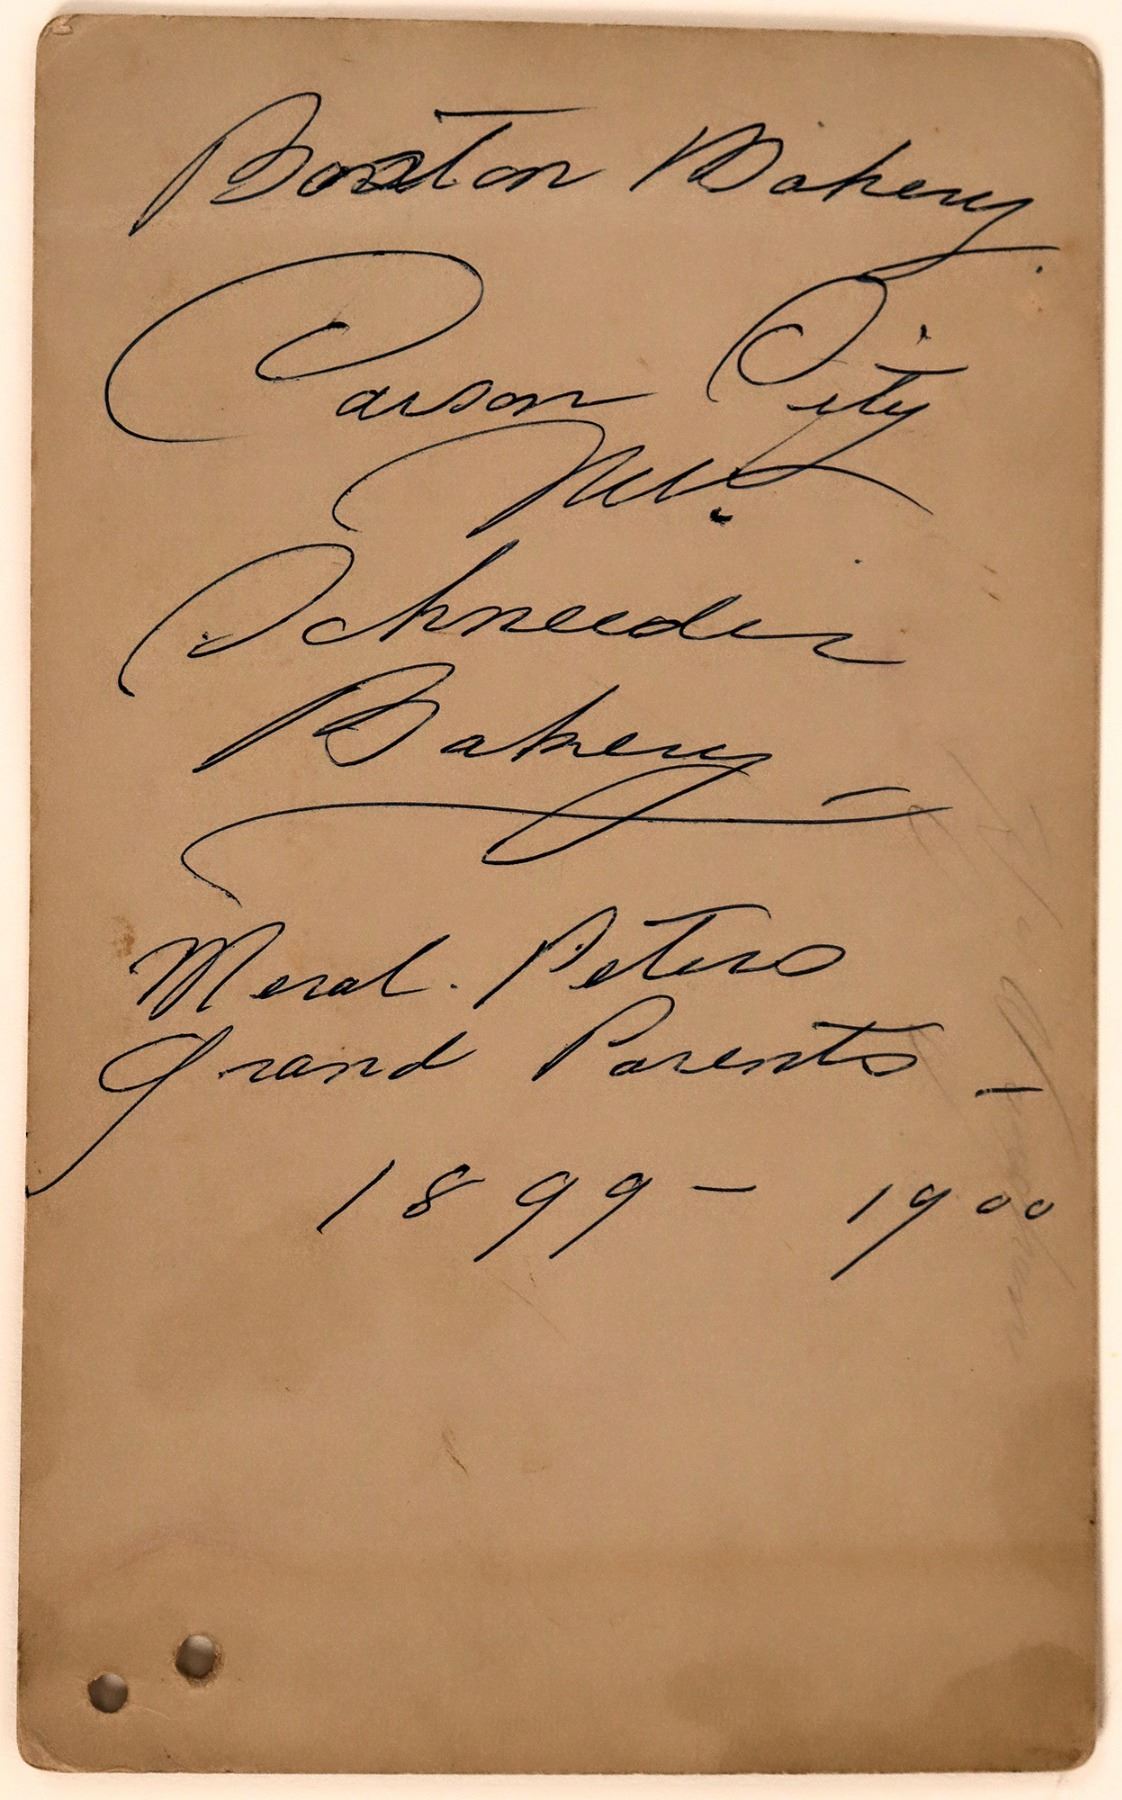 Boston Bakery.
Carson City
Nev.
Schneeder
Bakery
Meral. Peters
Grand Parents -
1899 - 1900